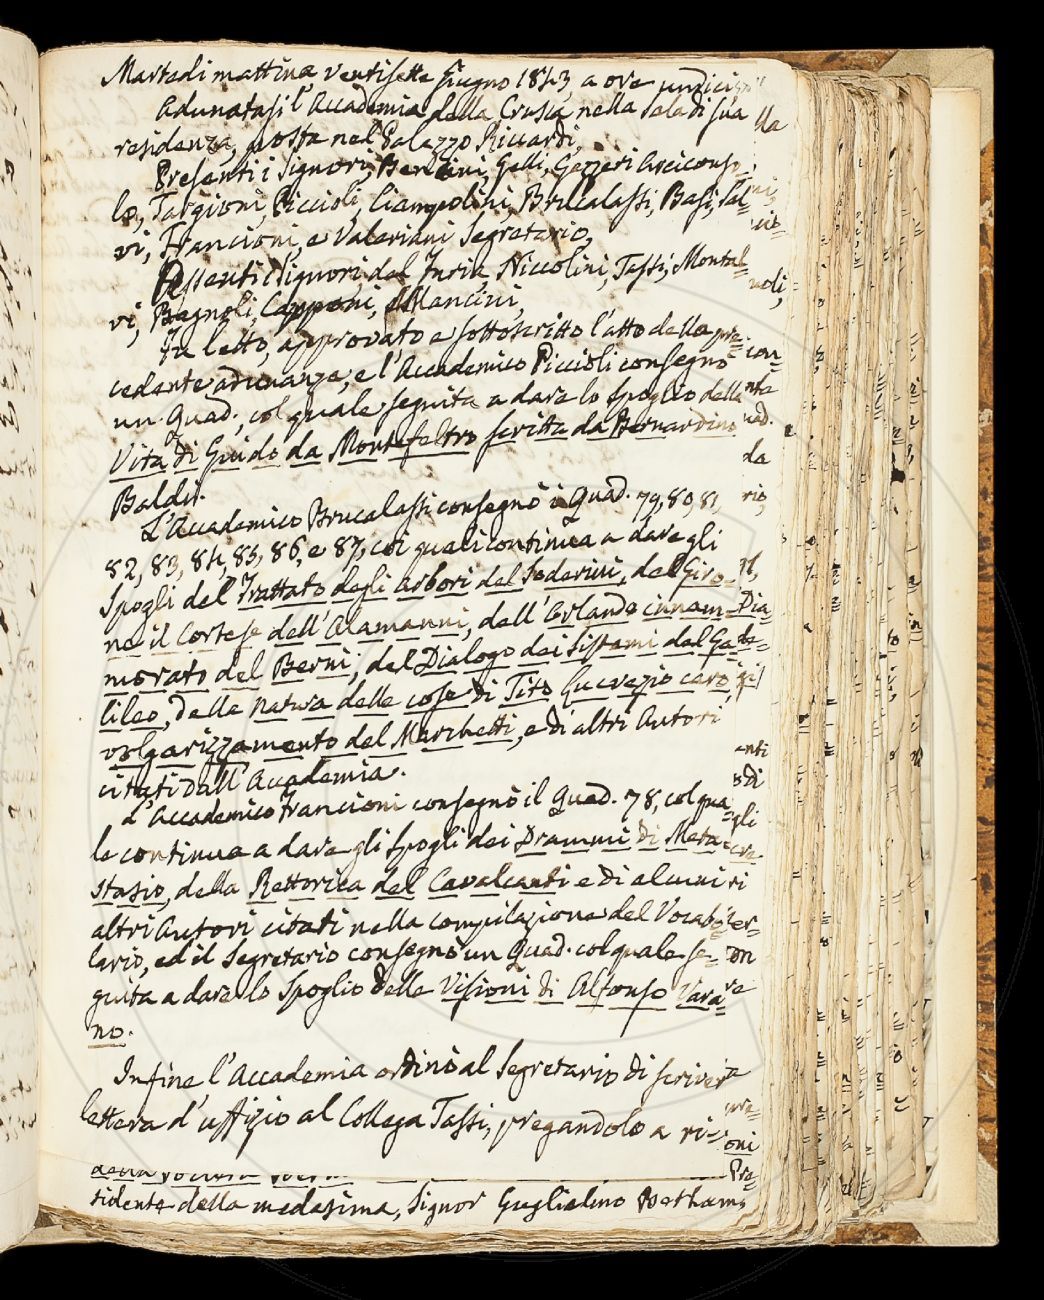 Martedi mattina ventisette Giugno 1843, a ore undici
Adunatasi l'Accademia della Crusca nella sala di sua
residenza, posta nel Palazzo Riccardi,
Presenti i Signori, Bencini, Gelli, Gazzeri Arciconso-
lo, Targioni, Piccioli, Ciampolini, Brucalassi, Basi, Sal-
vi, Francioni, e Valeriani Segretario,
Assenti i Signori, del Furia, Niccolini, Tassi, Montal-
vi, Bagnoli, Capponi, e Mancini,
Fu letto, approvato e sottoscritto l'atto della pre-
cedente adunanza, e l'Accademico Piccioli consegnò
un Quad., col quale seguita a dare lo spoglio della
Vita di Guido da Montefeltro scritta da Bernardino
Baldi.
L'Accademico Brucalassi consegnò i Quad. 79, 80, 81,
82, 83, 84, 85, 86, e 87, coi quali continua a dare gli
Spogli del Trattato degli Arbori del Soderini, del Giro-
ne il Cortese dell'Alamanni, dell'Orlando innam-
morato del Berni, del Dialogo dei Sistemi del Ga-
lileo, della natura delle cose di Tito Lucrezio caro,
volgarizzamento del Marchetti, e di altri Autori
citati dall'Accademia.
L'Accademico Francioni consegnò il Quad. 78, col qua-
le continua a dare gli spogli dei Drammi di Meta-
stasio, della Rettorica del Cavalcanti e di alcuni
altri Autori citati nella compilazione del Vocabo-
lario, ed il Segretario consegnò un Quad. col quale se-
guita a dare lo spoglio delle Visioni di Alfonso Vara-
no.
Infine l'Accademia ordinò al Segretario di scrivere
lettera d'uffizio al Collega Tassi, pregandolo a ri-
sidente della medesima, Signor Guglielmo Botham,